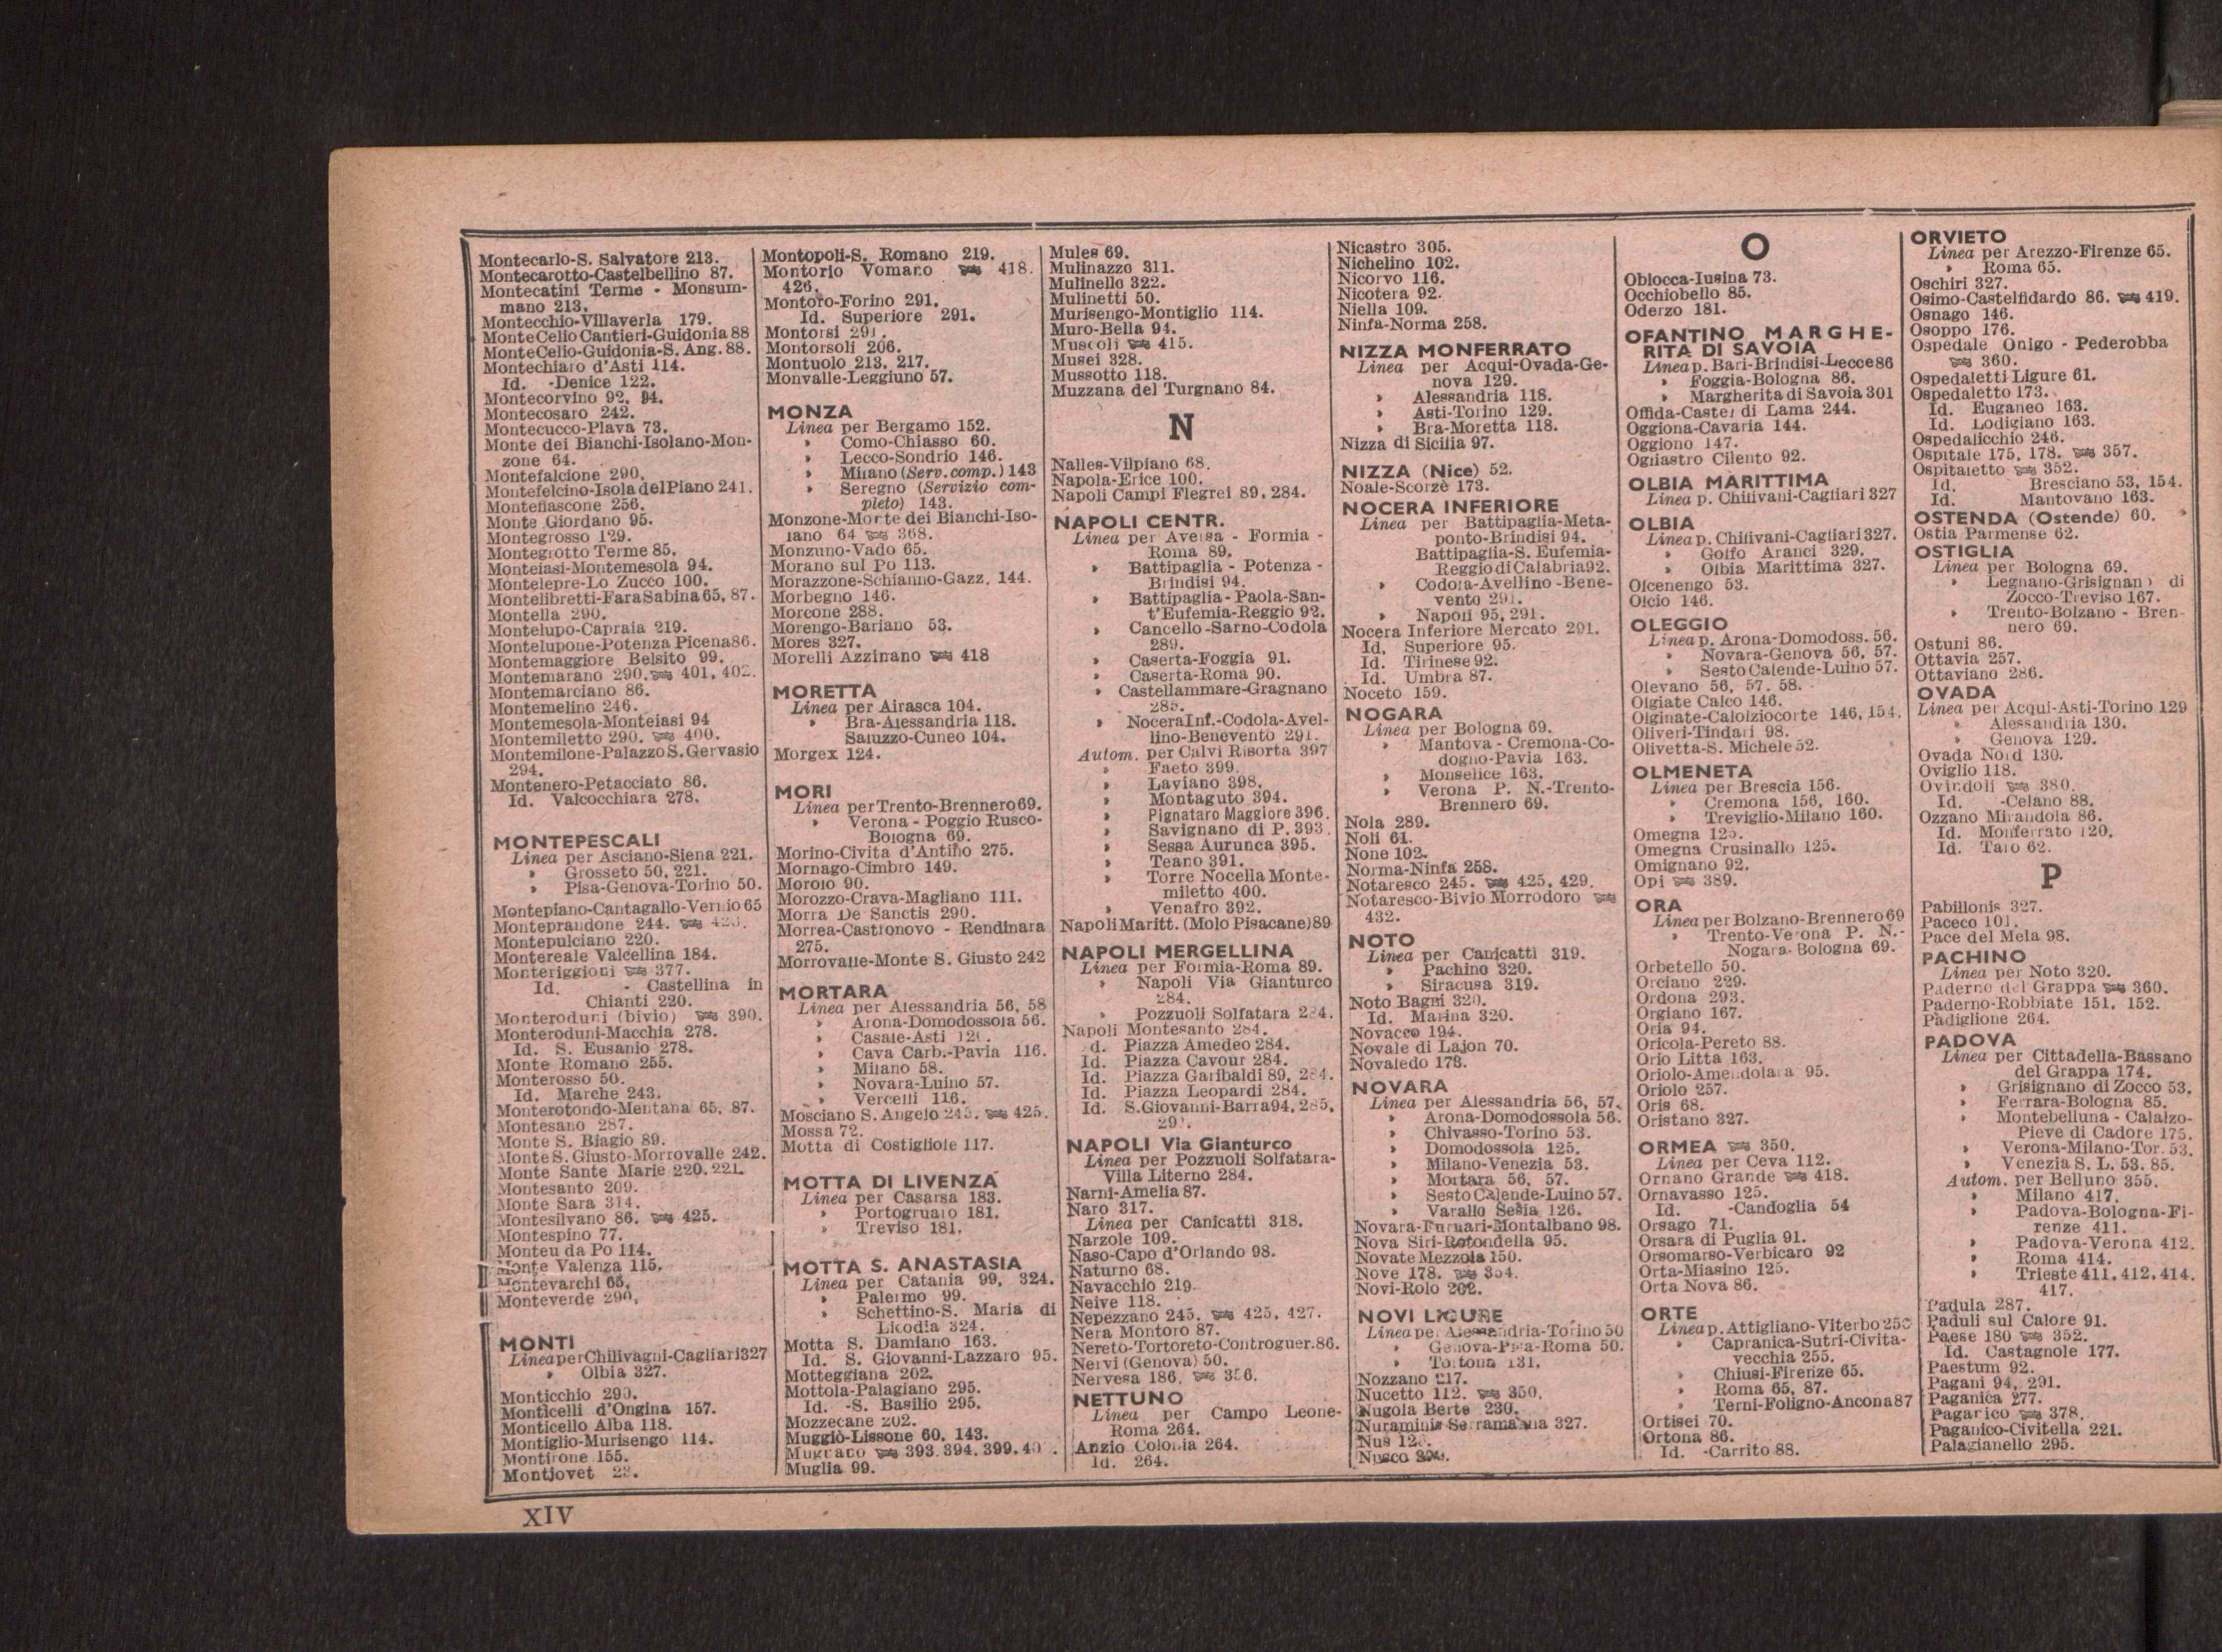 Montecarlo-S. Salvatore 213.
Montecarotto-Castelbellino 87.
Montecatini Terme - Monsum-
mano 213.
Montecchio-Villaverla 179.
Monte Celio Cantieri-Guidonia 88
Monte Celio-Guidonia-S. Ang. 88.
Montechiaro d'Asti 114.
Id. -Denice 122.
Montecorvino 92, 94.
Montecosaro 242.
Montecucco-Plava 73.
Monte dei Bianchi-Isolano-Mon-
zone 64.
Montefalcione 290.
Montefelcino-Isola del Piano 241.
Montefiascone 256.
Monte Giordano 95.
Montegrosso 129.
Montegrotto Terme 85.
Monteiasi-Montemesola 94.
Montelepre-Lo Zucco 100.
Montelibretti-Fara Sabina 65, 87.
Montella 290.
Montelupo-Capraia 219.
Montelupone-Potenza Picena 86.
Montemaggiore Belsito 99.
Montemarano 290. 401, 402.
Montemarciano 86.
Montemelino 246.
Montemesola-Monteiasi 94
Montemiletto 290. 400.
Montemilone-Palazzo S. Gervasio
294.
Montenero-Petacciato 86.
Id. Valcocchiara 278.
MONTEPESCALI
Linea per Asciano-Siena 221.
» Grosseto 50, 221.
» Pisa-Genova-Torino 50.
Montepiano-Cantagallo-Vernio 65
Monteprandone 244.
Montepulciano 220.
Montereale Valcellina 184.
Monteriggioni 377.
Id. - Castellina in
Chianti 220.
Monteroduni (bivio) 390.
Monteroduni-Macchia 278.
Id. S. Eusanio 278.
Monte Romano 255.
Monterosso 50.
Id. Marche 243.
Monterotondo-Mentana 65, 87.
Montesano 287.
Monte S. Biagio 89.
Monte S. Giusto-Morrovalle 242.
Monte Sante Marie 220, 221.
Montesanto 209.
Monte Sara 314.
Montesilvano 86. 425.
Montespino 77.
Monteu da Po 114.
Monte Valenza 115.
Montevarchi 65.
Monteverde 290.
MONTI
Linea per Chilivagni-Cagliari 327
» Olbia 327.
Monticchio 290.
Monticelli d'Ongina 157.
Monticello Alba 118.
Montiglio-Murisengo 114.
Montirone 155.
Montjovet
Montopoli-S. Romano 219.
Montorio Vomano 418.
426.
Montoro-Forino 291.
Id. Superiore 291.
Montorsi 291.
Montorsoli 206.
Montuolo 213, 217.
Monvalle-Leggiuno 57.
MONZA
Linea per Bergamo 152.
» Como-Chiasso 60.
» Lecco-Sondrio 146.
» Milano (Serv. comp.) 143
» Seregno (Servizio com-
pleto) 143.
Monzone-Monte dei Bianchi-Iso-
lano 64 368.
Monzuno-Vado 65.
Morano sul Po 113.
Morazzone-Schianno-Gazz. 144.
Morbegno 146.
Morcone 288.
Morengo-Bariano 53.
Mores 327.
Morelli Azzinano 418
MORETTA
Linea per Airasca 104.
» Bra-Alessandria 118.
Saluzzo-Cuneo 104.
Morgex 124.
MORI
Linea per Trento-Brennero 69.
» Verona - Poggio Rusco-
Bologna 69.
Morino-Civita d'Antino 275.
Mornago-Cimbro 149.
Morolo 90.
Morozzo-Crava-Magliano 111.
Morra De Sanctis 290.
Morrea-Castronovo - Rendinara
275.
Morrovalle-Monte S. Giusto 242
MORTARA
Linea per Alessandria 56, 58
» Arona-Domodossola 56.
» Casale-Asti
» Cava Carb.-Pavia 116.
» Milano 58.
» Novara-Luino 57.
» Vercelli 116.
Mosciano S. Angelo 245. 425.
Mossa 72.
Motta di Costigliole 117.
MOTTA DI LIVENZA
Linea per Casarsa 183.
» Portogruaro 181.
» Treviso 181.
MOTTA S. ANASTASIA
Linea per Catania 99, 324.
» Palermo 99.
» Schettino-S. Maria di
Licodia 324.
Motta S. Damiano 163.
Id. S. Giovanni-Lazzaro 95.
Motteggiana 202.
Mottola-Palagiano 295.
Id. -S. Basilio 295.
Mozzecane 202.
Muggiò-Lissone 60, 143.
Mugnano 393, 394, 399,
Muglia 99.
Mules 69.
Mulinazzo 311.
Mulinello 322.
Mulinetti 50.
Murisengo-Montiglio 114.
Muro-Bella 94.
Muscoli 415.
Musei 328.
Mussotto 118.
Muzzana del Turgnano 84.
N
Nalles-Vilpiano 68.
Napola-Erice 100.
Napoli Campi Flegrei 89, 284.
NAPOLI CENTR.
Linea per Aversa - Formia -
Roma 89.
» Battipaglia - Potenza -
Brindisi 94.
» Battipaglia - Paola-San-
t'Eufemia-Reggio 92.
» Cancello-Sarno-Codola
289.
» Caserta-Foggia 91.
» Caserta-Roma 90.
» Castellammare-Gragnano
285.
» Nocera Inf.-Codola-Avel-
lino-Benevento 291.
Autom. per Calvi Risorta 397
» Faeto 399.
» Laviano 398.
» Montaguto 394.
» Pignataro Maggiore 396.
» Savignano di P. 393.
» Sessa Aurunca 395.
» Teano 391.
» Torre Nocella Monte-
miletto 400.
» Venafro 392.
Napoli Maritt. (Molo Pisacane) 89
NAPOLI MERGELLINA
Linea per Formia-Roma 89.
» Napoli Via Gianturco
284.
» Pozzuoli Solfatara 284.
Napoli Montesanto 284.
d. Piazza Amedeo 284.
Id. Piazza Cavour 284.
Id. Piazza Garibaldi 89, 284.
Id. Piazza Leopardi 284.
Id. S. Giovanni-Barra 94, 285,
NAPOLI Via Gianturco
Linea per Pozzuoli Solfatara-
Villa Literno 284.
Narni-Amelia 87.
Naro 317.
Linea per Canicattì 318.
Narzole 109.
Naso-Capo d'Orlando 98.
Naturno 68.
Navacchio 219.
Neive 118.
Nepezzano 245. 425, 427.
Nera Montoro 87.
Nereto-Tortoreto-Controguer. 86.
Nervi (Genova) 50.
Nervesa 186. 356.
NETTUNO
Linea per Campo Leone-
Roma 264.
Anzio Colonia 264.
Id. 264.
Nicastro 305.
Nichelino 102.
Nicorvo 116.
Nicotera 92.
Niella 109.
Ninfa-Norma 258.
NIZZA MONFERRATO
Linea per Acqui-Ovada-Ge-
nova 129.
» Alessandria 118.
» Asti-Torino 129.
» Bra-Moretta 118.
Nizza di Sicilia 97.
NIZZA (Nice) 52.
Noale-Scorzè 173.
NOCERA INFERIORE
Linea per Battipaglia-Meta-
ponto-Brindisi 94.
Battipaglia-S. Eufemia-
Reggio di Calabria 92.
» Codola-Avellino-Bene-
vento 291.
» Napoli 95, 291.
Nocera Inferiore Mercato 291.
Id. Superiore 95.
Id. Tirinese 92.
Id. Umbra 87.
Noceto 159.
NOGARA
Linea per Bologna 69.
» Mantova - Cremona-Co-
dogno-Pavia 163.
» Monselice 163.
» Verona P. N.-Trento-
Brennero 69.
Nola 289.
Noli 61.
None 102.
Norma-Ninfa 258.
Notaresco 245. 425, 429.
Notaresco-Bivio Morrodoro
432.
NOTO
Linea per Canicattì 319.
» Pachino 320.
» Siracusa 319.
Noto Bagni 320.
Id. Marina 320.
Novacco 194.
Novale di Lajon 70.
Novaledo 178.
NOVARA
Linea per Alessandria 56, 57.
» Arona-Domodossola 56.
» Chivasso-Torino 53.
» Domodossola 125.
» Milano-Venezia 53.
» Mortara 56, 57.
» Sesto Calende-Luino 57.
» Varallo Sesia 126.
Novara-Furnari-Montalbano 98.
Nova Siri-Rotondella 95.
Novate Mezzola 150.
Nove 178. 354.
Novi-Rolo 202.
NOVI LIGURE
Linea per Alessandria-Torino 50
» Genova-Pisa-Roma 50.
» Tortona 131.
Nozzano 217.
Nucetto 112. 350.
Nugola Berte 230.
Nuraminis Serramanna 327.
Nus
Nusco
O
Oblocca-Iusina 73.
Occhiobello 85.
Oderzo 181.
OFANTINO MARGHE-
RITA DI SAVOIA
Linea p. Bari-Brindisi-Lecce 86
» Foggia-Bologna 86.
» Margherita di Savoia 301
Offida-Castel di Lama 244.
Oggiona-Cavaria 144.
Oggiono 147.
Ogliastro Cilento 92.
OLBIA MARITTIMA
Linea p. Chilivani-Cagliari 327
OLBIA
Linea p. Chilivani-Cagliari 327.
» Golfo Aranci 329.
» Olbia Marittima 327.
Olcenengo 53.
Olcio 146.
OLEGGIO
Linea p. Arona-Domodoss. 56.
» Novara-Genova 56, 57.
» Sesto Calende-Luino 57.
Olevano 56, 57, 58.
Olgiate Calco 146.
Olginate-Calolziocorte 146, 154.
Oliveri-Tindari 98.
Olivetta-S. Michele 52.
OLMENETA
Linea per Brescia 156.
» Cremona 156, 160.
» Treviglio-Milano 160.
Omegna 125.
Omegna Crusinallo 125.
Omignano 92.
Opi 389.
ORA
Linea per Bolzano-Brennero 69
» Trento-Verona P. N.-
Nogara-Bologna 69.
Orbetello 50.
Orciano 229.
Ordona 293.
Orgiano 167.
Oria 94.
Oricola-Pereto 88.
Orio Litta 163.
Oriolo-Amendolara 95.
Oriolo 257.
Oris 68.
Oristano 327.
ORMEA 350.
Linea per Ceva 112.
Ornano Grande 418.
Ornavasso 125.
Id. -Candoglia 54
Orsago 71.
Orsara di Puglia 91.
Orsomarso-Verbicaro 92
Orta-Miasino 125.
Orta Nova 86.
ORTE
Linea p. Attigliano-Viterbo
» Capranica-Sutri-Civita-
vecchia 255.
» Chiusi-Firenze 65.
» Roma 65, 87.
» Terni-Foligno-Ancona 87
Ortisei 70.
Ortona 86.
Id. -Carrito 88.
ORVIETO
Linea per Arezzo-Firenze 65.
» Roma 65.
Oschiri 327.
Osimo-Castelfidardo 86. 419.
Osnago 146.
Osoppo 176.
Ospedale Onigo - Pederobba
360.
Ospedaletti Ligure 61.
Ospedaletto 173.
Id. Euganeo 163.
Id. Lodigiano 163.
Ospedalicchio 246.
Ospitale 175, 178. 357.
Ospitaletto 352.
Id. Bresciano 53, 154.
Id. Mantovano 163.
OSTENDA (Ostende) 60.
Ostia Parmense 62.
OSTIGLIA
Linea per Bologna 69.
» Legnano-Grisignano di
Zocco-Treviso 167.
» Trento-Bolzano - Bren-
nero 69.
Ostuni 86.
Ottavia 257.
Ottaviano 286.
OVADA
Linea per Acqui-Asti-Torino 129
» Alessandria 130.
» Genova 129.
Ovada Nord 130.
Oviglio 118.
Ovindoli 380.
Id. -Celano 88.
Ozzano Mirandola 86.
Id. Monferrato 120.
Id. Taro 62.
P
Pabillonis 327.
Paceco 101.
Pace del Mela 98.
PACHINO
Linea per Noto 320.
Paderno del Grappa 360.
Paderno-Robbiate 151, 152.
Padiglione 264.
PADOVA
Linea per Cittadella-Bassano
del Grappa 174.
» Grisignano di Zocco 53.
» Ferrara-Bologna 85.
» Montebelluna - Calalzo-
Pieve di Cadore 175.
» Verona-Milano-Tor. 53.
» Venezia S. L. 53, 85.
Autom. per Belluno 355.
» Milano 417.
» Padova-Bologna-Fi-
renze 411.
» Padova-Verona 412.
» Roma 414.
» Trieste 411, 412, 414.
417.
Padula 287.
Paduli sul Calore 91.
Paese 180 352.
Id. Castagnole 177.
Paestum 92.
Pagani 94, 291.
Paganica 277.
Paganico 378.
Paganico-Civitella 221.
Palagianello 295.
XIV